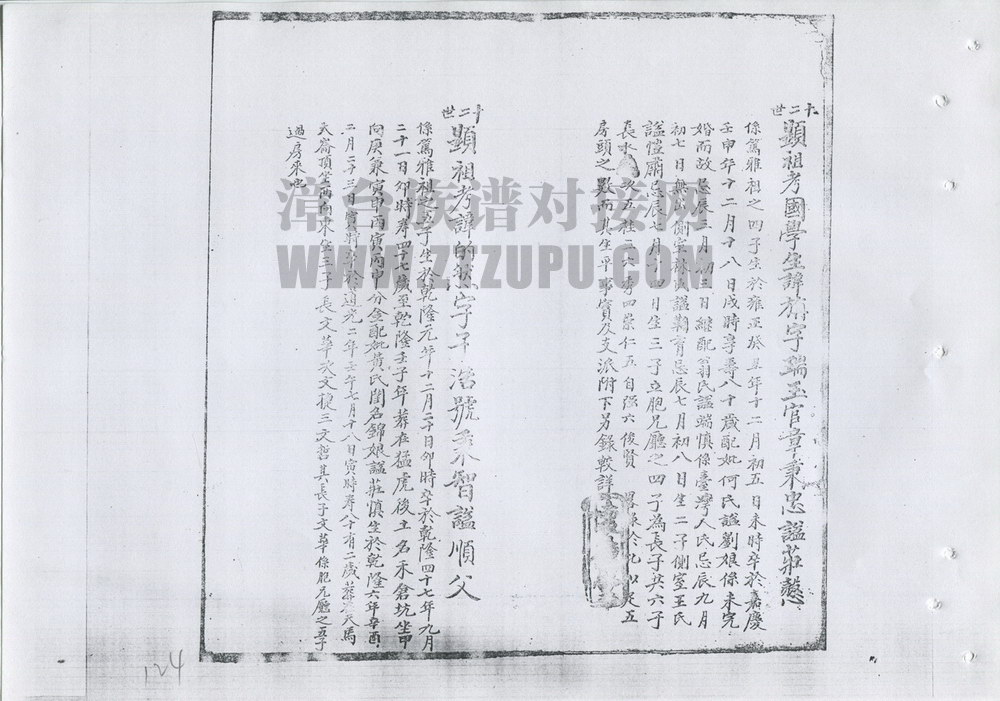 十二世
顯祖考國學生諱旂字瑞玉官章秉忠謚莊懿
係篤雅祖之四子生於雍正癸丑年十二月初五日未時卒於嘉慶
壬申年十二月十八日戌時享壽八十歲配妣何氏謚劉娘係未完
婚而故忌辰三月初三日繼配翁氏謚端慎係臺灣人氏忌辰九月
初七日無出側室林氏謚勤育忌辰七月初八日生二子側室王氏
謚愷肅忌辰七月十四日生三子立胞兄廳之四子為長子共六子
長水 次五社三 四榮仁五自強六俊賢
房頭之數而其生平事實及支派附下另錄較詳
十二世
顯祖考諱的 字子治號 智謚順父
係篤雅祖之五子生於乾隆元年十二月二十日卯時卒於乾隆四十七年九月
二十一日卯時壽四十七歲至乾隆壬子年葬在猛虎後土名禾倉坑坐甲
向庚兼寅申丙寅丙申分金配妣黃氏閨名錦娘謚莊慎生於乾隆六年辛酉
二月二十三日寅時卒於道光二年壬午七月十八日寅時壽八十有二歲葬 天馬
山崙頂坐西向東生三子長文華次文捷三文哲其長子文華係胞兄廳之五子
過房來也
漳台族谱对接网
WWW.ZTZUPU.COM
124